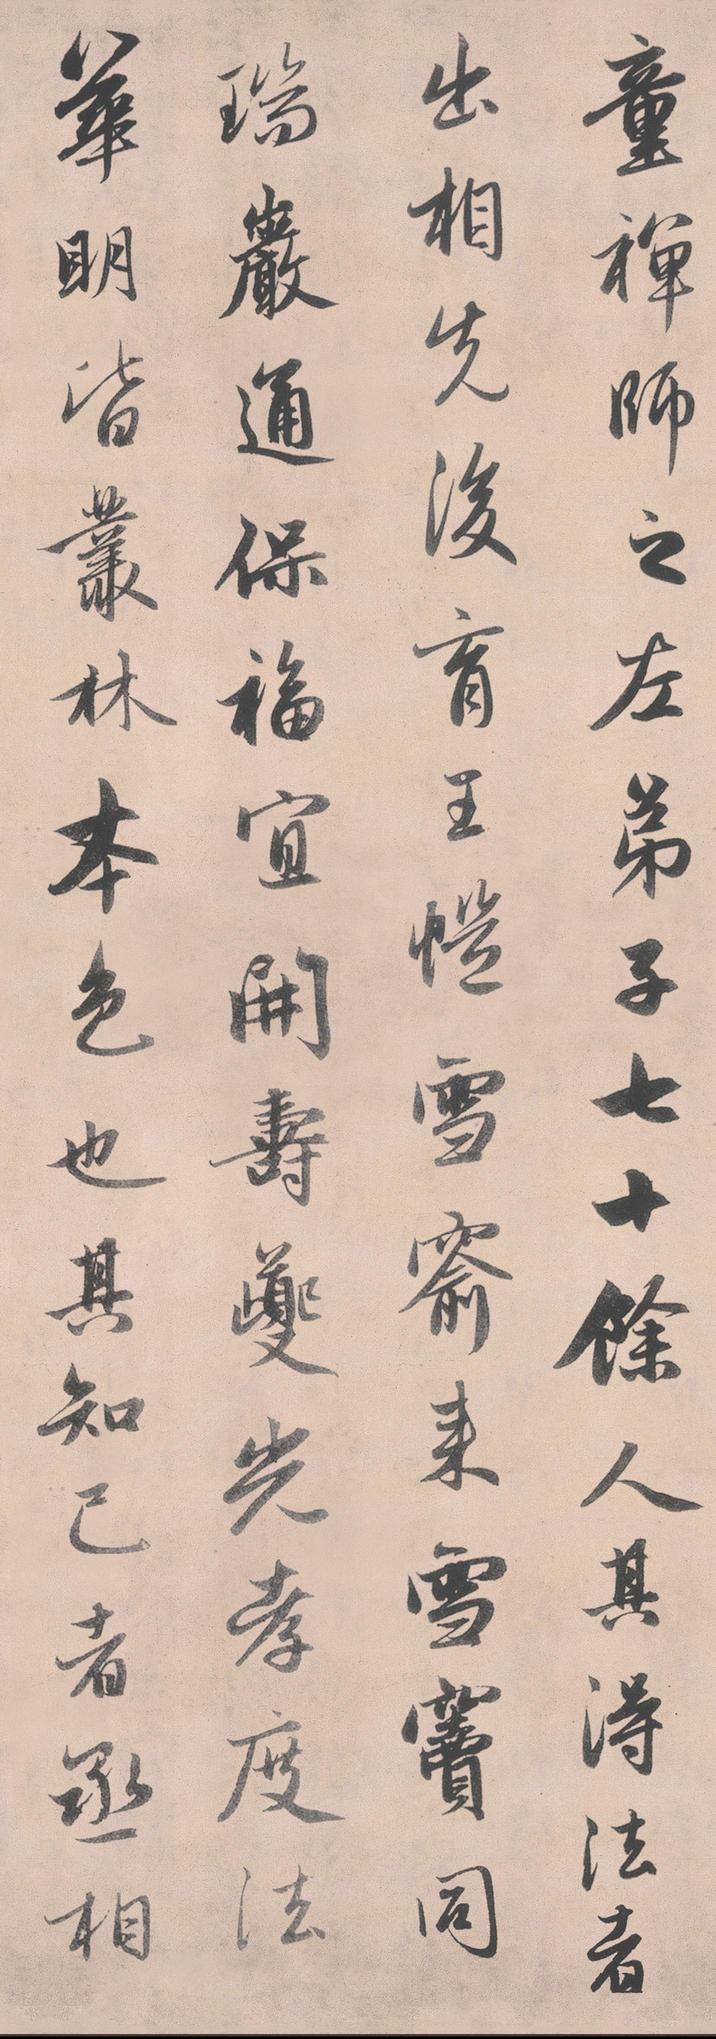 童禪師之左弟子七十餘人其得法者
出相先後育王愷雪窬来雪竇同
瑞巖通保福宜開壽夔光孝度法
華明皆叢林本色也其知己者丞相